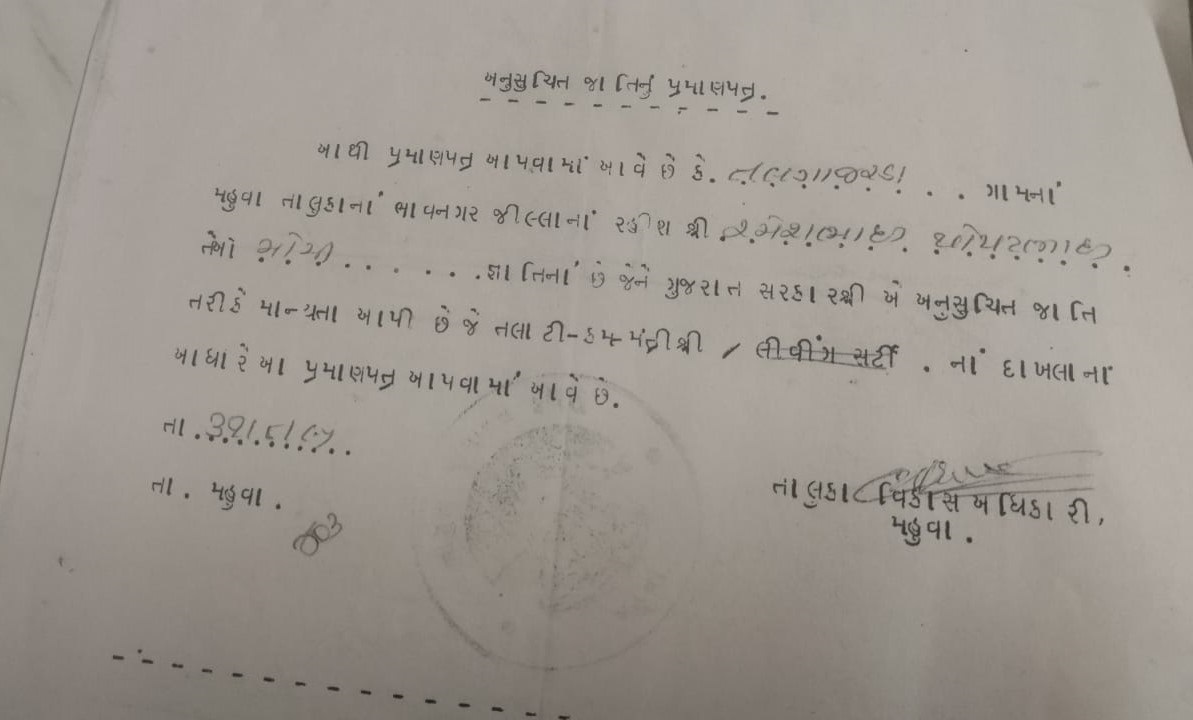 અનુસુચિત જાતિનું પ્રમાણપત્ર.
આથી પ્રમાણપત્ર આપવામાં આવે છે કે. તલગાજરડા . . ગામનાં
મહુવા તાલુકાનાં ભાવનગર જીલ્લાનાં રહીશ શ્રી રમેશભાઇ
તેઓ . . . . . . જ્ઞાતિનાં છે જેને ગુજરાત સરકારશ્રી એ અનુસુચિત જાતિ
તરીકે માન્યતા આપી છે જે તલાટી-કમ-મંત્રીશ્રી / લીવીંગ સર્ટી . નાં દાખલાનાં
આધારે આ પ્રમાણપત્ર આપવામાં આવે છે.
તા.
તા. મહુવા.
તાલુકા વિકાસ અધિકારી,
મહુવા.